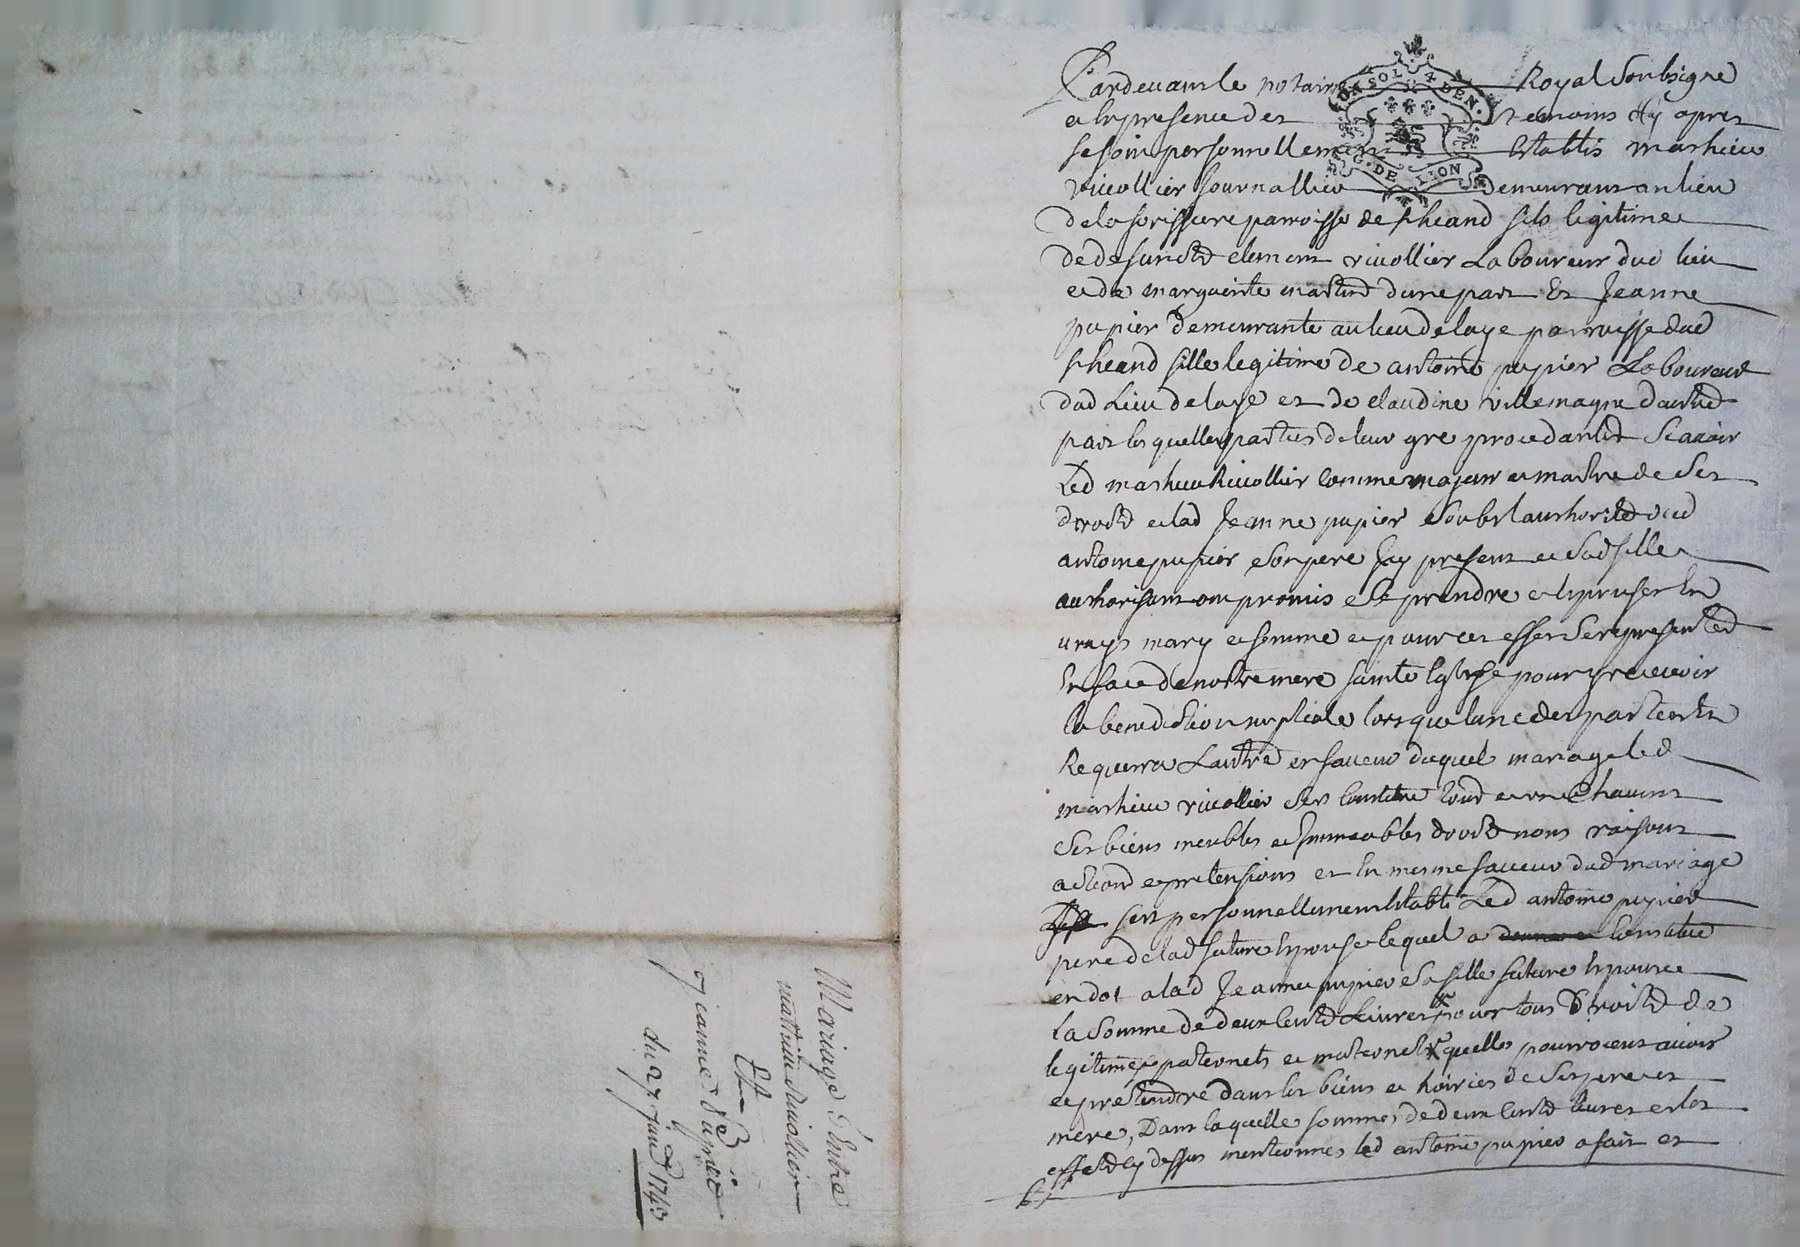 Pardevant le notaire Royal Soubsigné
et en presence des temoins cy apres
se sont personnellement establis mathieu
rivollier journallier demeurant au lieu
de la forissiere parroisse de st heand fils legitime
de defunct clement rivollier Laboureur dud lieu
et de marguerite d'une part Et Jeanne
pupier demeurante au lieu de laye parroisse dud
st heand fille legitime de antoine pupier Laboureur
dud Lieu de laye et de claudine villemagne d'autre
part lesquelles parties de leur gre procedantes Scavoir
Led mathieu Rivollier comme majeur et maistre de Ses
droits et lad Jeanne pupier Soubs l'authorité dud
antoine pupier Son pere Icy present et Sad fille
authorisant ont promis Se prendre et Epouser En
vrays mary et femme et pour cet effet Se representer
En face de nostre mere Sainte Eglise pour y recevoir
la benediction nuptiale lorsque lune des parties En
Requerra L'autre en faveur duquel mariage led
mathieu rivollier s'est constitué tous et un Chacuns
Ses biens meubles et Immeubles droits noms raisons
actions et pretensions et En mesme faveur dud mariage
s'est personnellement Establi Led antoine pupier
pere de lad future Epouse lequel a constitué
en dot a lad Jeanne pupier Sa fille future Epouse
la Somme de deux Cents Livres pour tous Droits de
legitime paternels et maternels quelle pourroient avoir
et pretendre dans les biens et hoiries de Ses pere et
mere, Dans laquelle somme de deux Cents livres et les
effets cy dessus mentionnes led antoine pupier a fait et
DIX SOLS 4 DEN.
G. DE LION
Mariage Entre
mathieu Rivollier
Et
jeanne Pupier
du 27 janv 1743